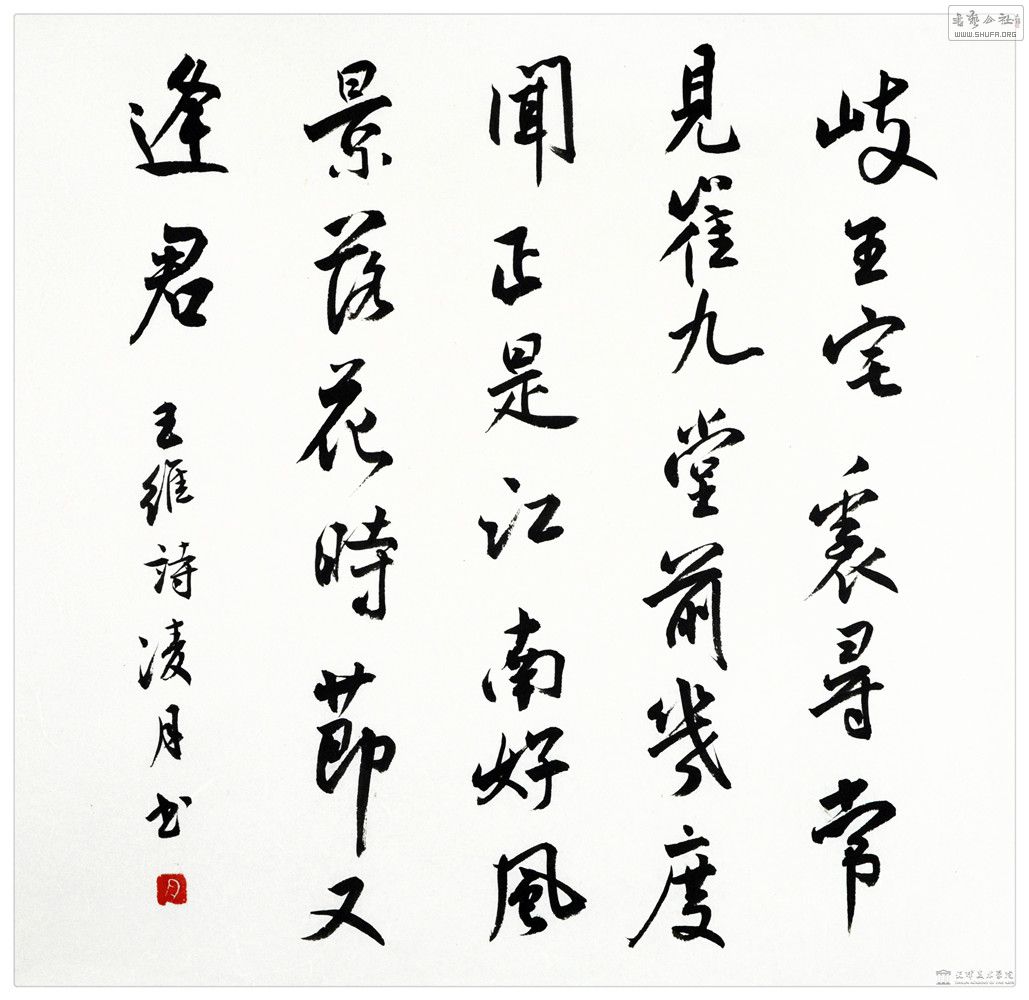 岐王宅裏尋常
見崔九堂前幾度
聞正是江南好風
景落花時節又
逢君
王維詩凌月书
月
书艺公社
WWW.SHUFA.ORG